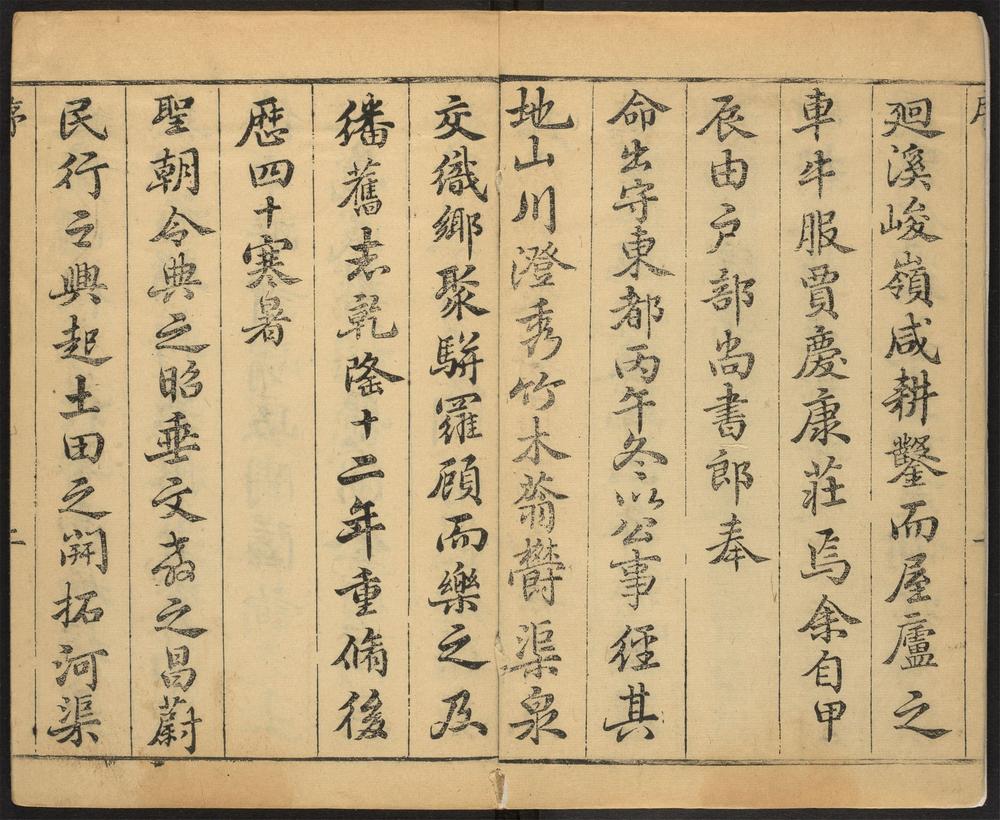 廻溪峻嶺咸耕鑿而屋廬之
車牛服賈慶康莊焉余自甲
辰由户部尚書郎奉
命出守東都丙午冬以公事經其
地山川澄秀竹木蓊欝渠泉
交織鄉聚駢羅顧而樂之及
繙舊志乾隆十二年重脩後
歷四十寒暑
聖朝令典之昭垂文教之昌蔚
民行之興起土田之開拓河渠
序
二